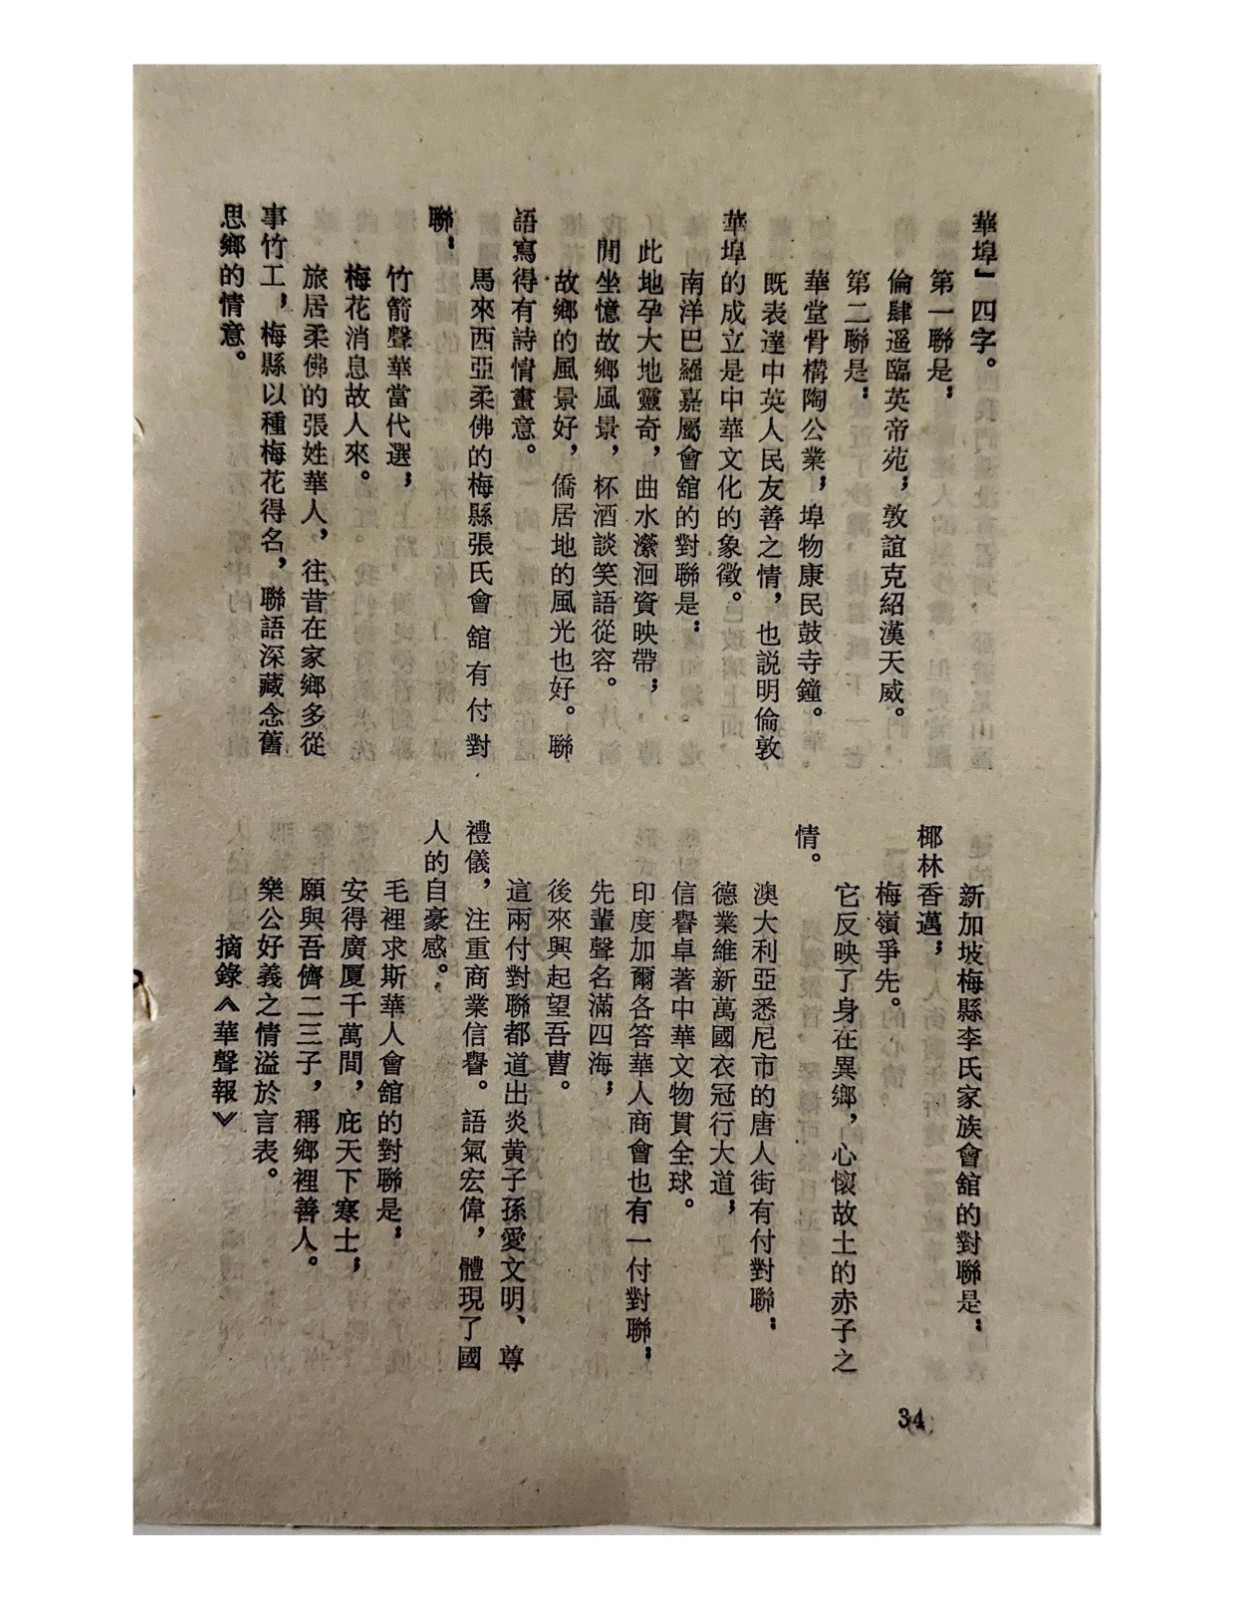 華埠』四字。
第一聯是：
倫肆遥臨英帝苑，敦誼克紹漢天威。
第二聯是：
華堂骨構陶公業，埠物康民鼓寺鐘。
既表達中英人民友善之情，也説明倫敦
華埠的成立是中華文化的象徵。
南洋巴羅嘉屬會舘的對聯是：
此地孕大地靈奇，曲水瀠洄資映帶，
閒坐憶故鄉風景，杯酒談笑語從容。
故鄉的風景好，僑居地的風光也好。聯
語寫得有詩情畫意。
馬來西亞柔佛的梅縣張氏會舘有付對
聯：
竹箭聲華當代選，
梅花消息故人來。
旅居柔佛的張姓華人，往昔在家鄉多從
事竹工，梅縣以種梅花得名，聯語深藏念舊
思鄉的情意。
新加坡梅縣李氏家族會舘的對聯是：
椰林香邁，
梅嶺爭先。
它反映了身在異鄉，心懷故土的赤子之
情。
澳大利亞悉尼市的唐人街有付對聯：
德業維新萬國衣冠行大道，
信譽卓著中華文物貫全球。
印度加爾各答華人商會也有一付對聯：
先輩聲名滿四海，
後來興起望吾曹。
這兩付對聯都道出炎黄子孫愛文明、尊
禮儀，注重商業信譽。語氣宏偉，體現了國
人的自豪感。
毛裡求斯華人會舘的對聯是：
安得廣厦千萬間，庇天下寒士，
願與吾儕二三子，稱鄉裡善人。
樂公好義之情溢於言表。
摘錄《華聲報》
34